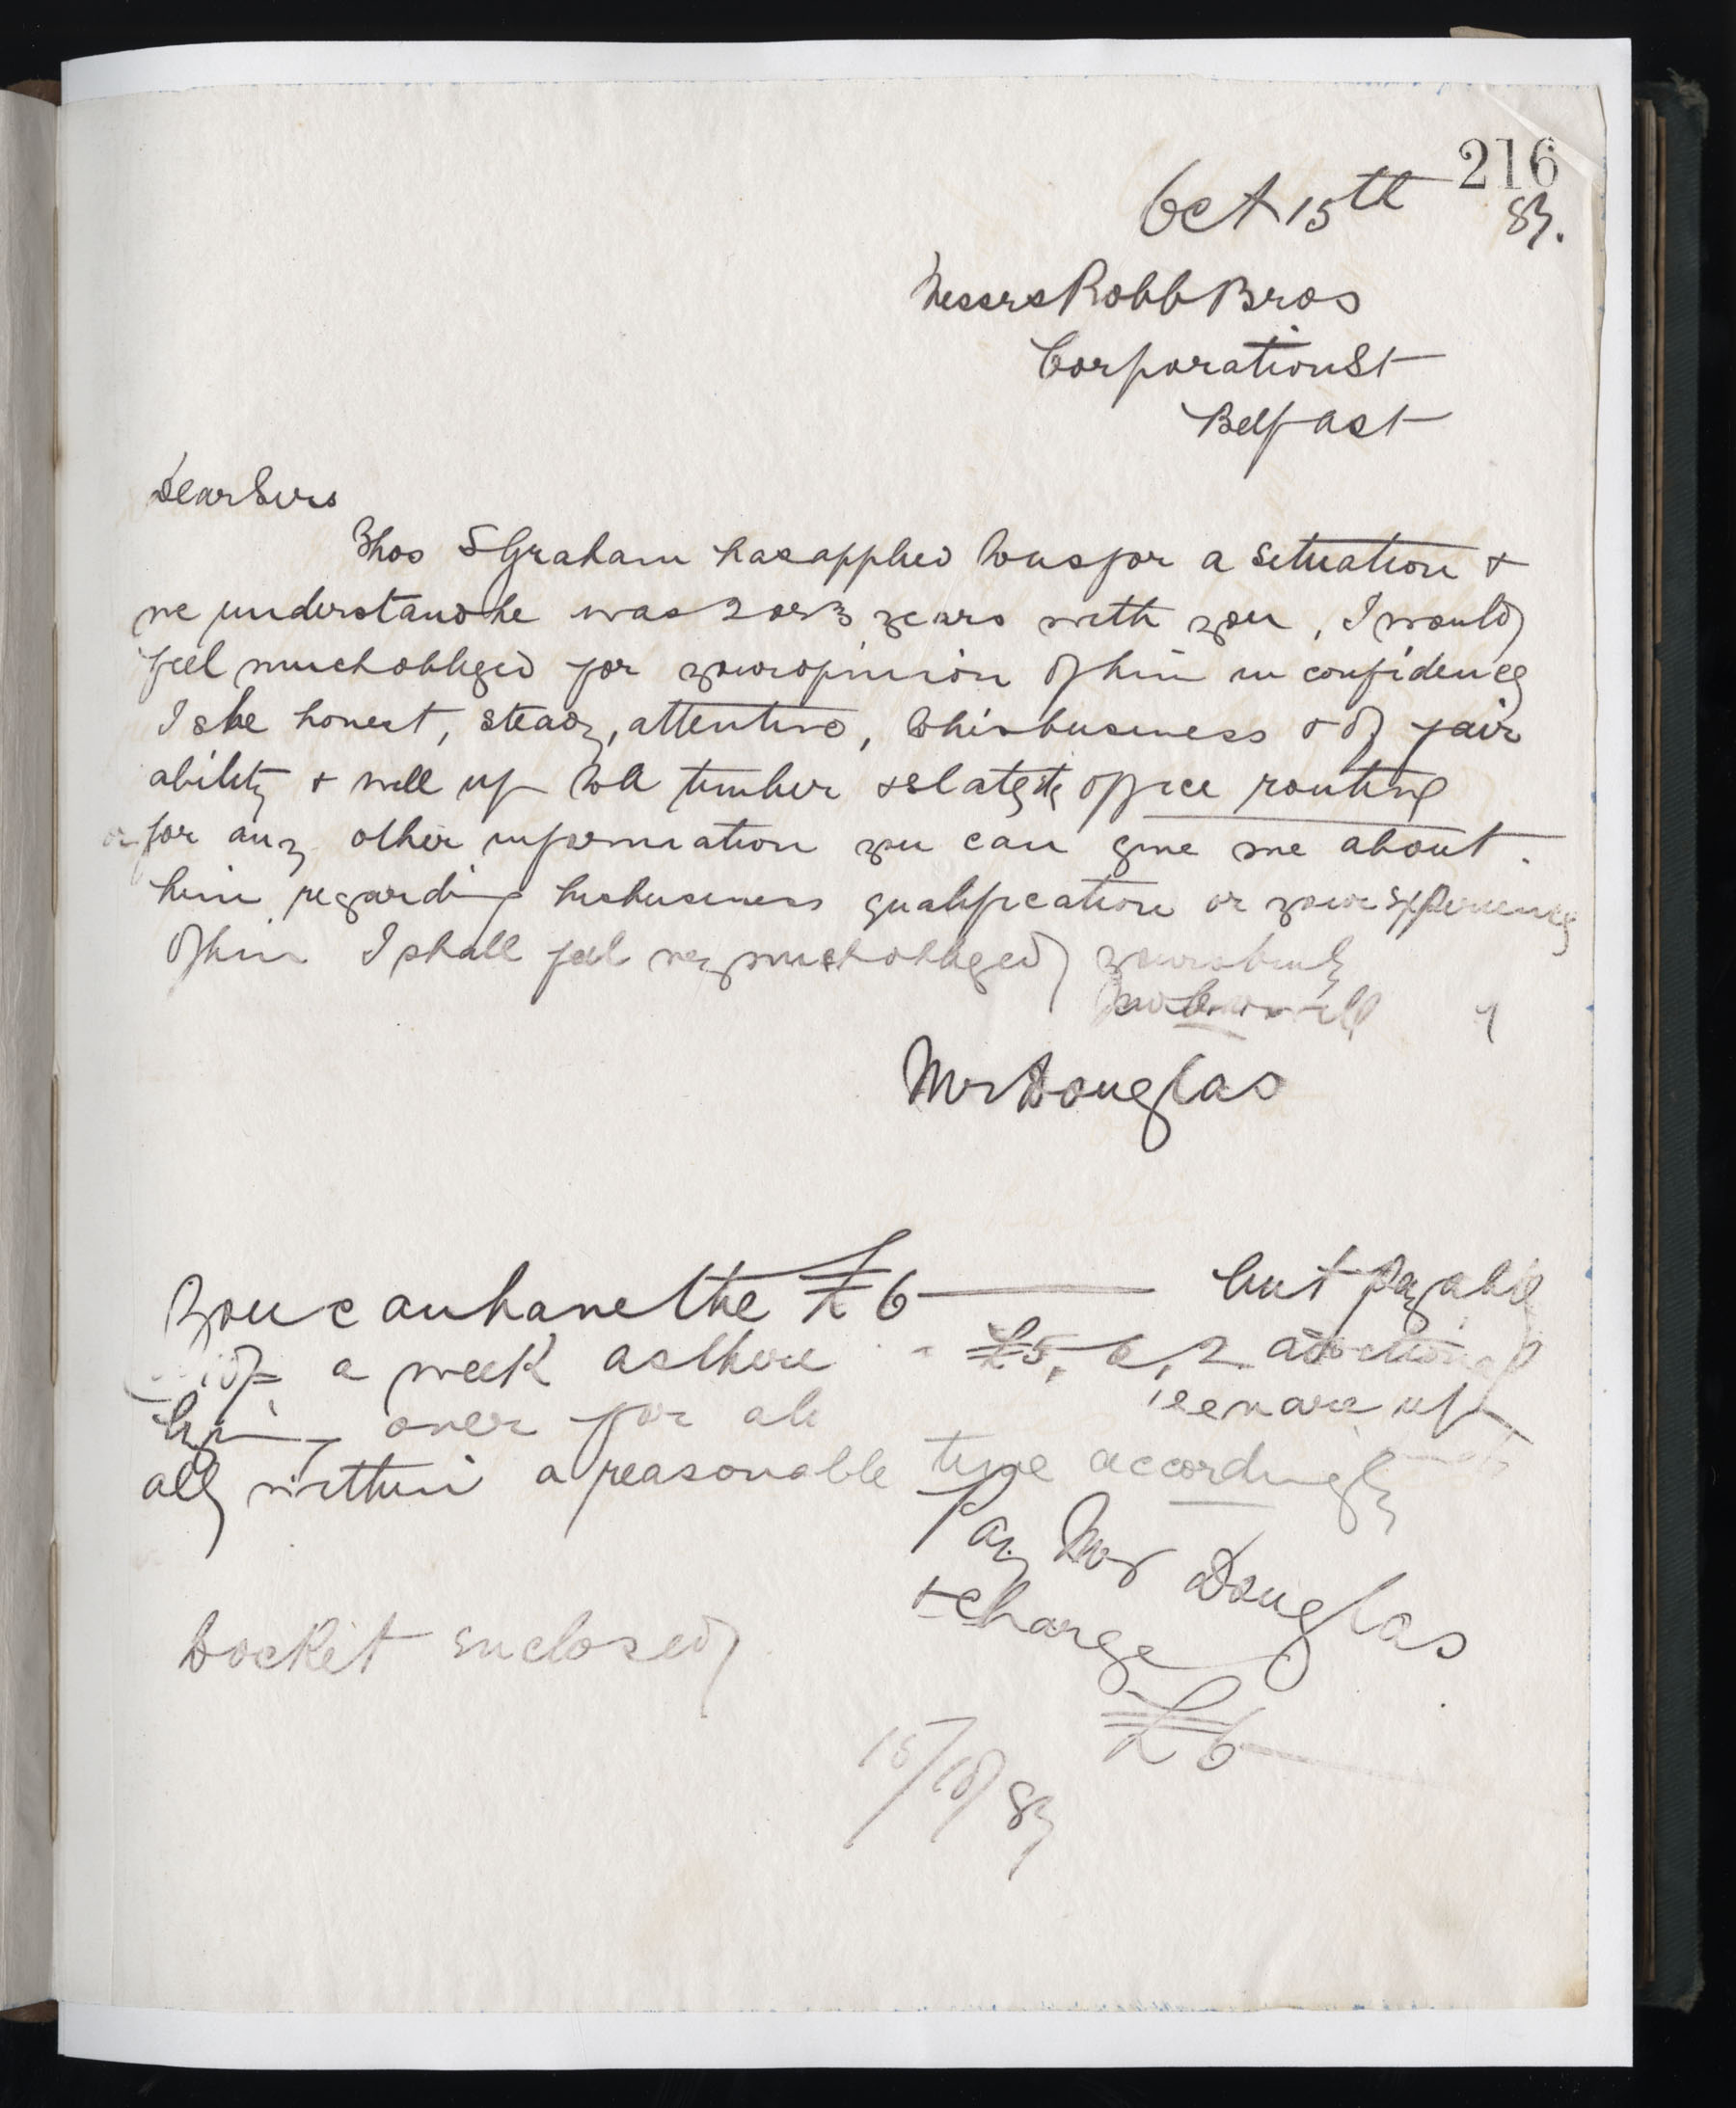 216
Oct 15th 83.
Messrs Robb Bros
Corporation St
Belfast
Dear Sirs
Thos S Graham has applied to us for a situation &
we understand he was 2 or 3 years with you, I would
feel much obliged for your opinion of him in confidence
Is he honest, steady, attentive, to his business & of fair
ability & well up to the timber & slate office routine
or for any other information you can give me about
him regarding his business qualification or your experience
of him I shall feel very much obliged yours truly
Mr Douglas
You can have the £6 — but payable
10/- a week as there £5, 6, 2 additional
over for all
ally within a reasonable time accordingly
Pay Mr Douglas
& charge
£6
Docket enclosed
15/10/83